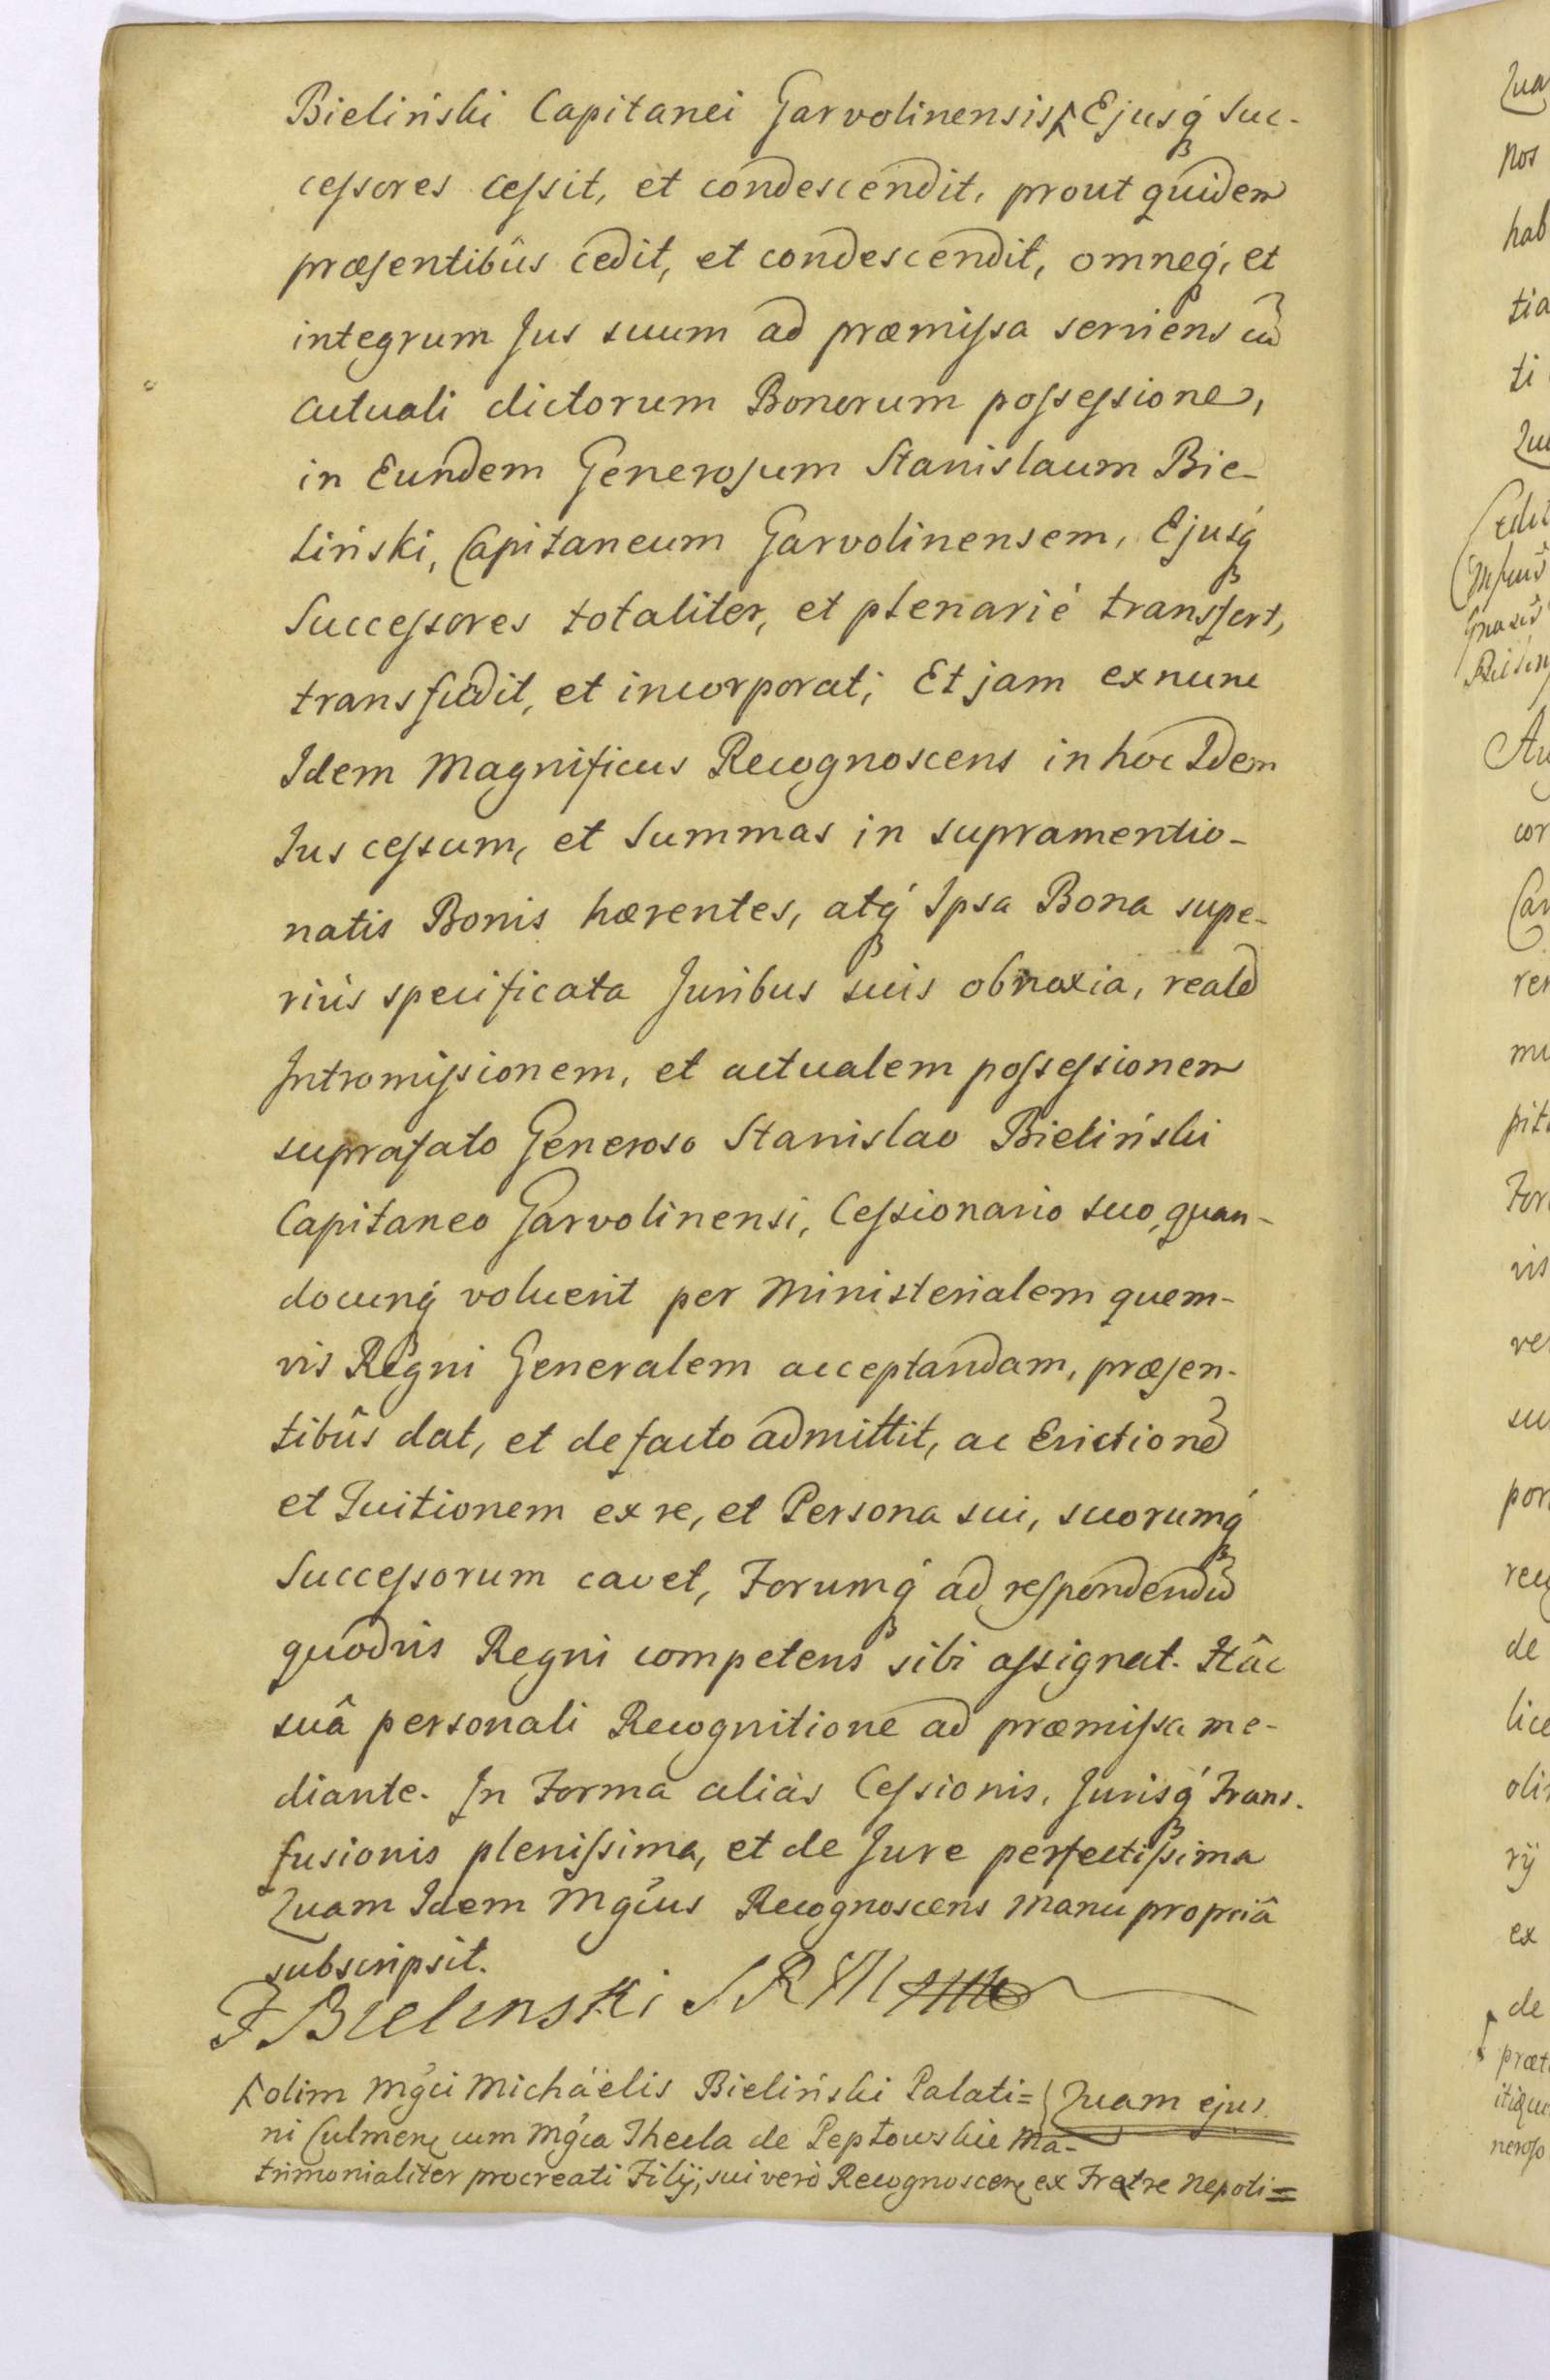 Bieliński Capitanei Garvolinensis Ejusq́ Suc-
cessores cessit, et condescendit, prout quidem
præsentibûs cedit, et condescendit, omneq́, et
integrum Jus suum ad præmissa serviens cũ
actuali dictorum Bonorum possessione,
in Eundem Generosum Stanislaum Bie-
liński, Capitaneum Garvolinensem, Ejusq́
Successores totaliter, et plenarié transfert,
transfudit, et incorporat; Et jam ex nunc
Idem Magnificus Recognoscens in hoc Idem
Jus cessum, et Summas in supramentio-
natis Bonis hærentes, atq́ Ipsa Bona supe-
riús specificata Juribus suis obnoxia, realẽ
Intromissionem, et actualem possessionem
suprafato Generoso Stanislao Bieliński
Capitaneo Garvolinensi, Cessionario suo, quan-
docunq́ voluerit per Ministerialem quem-
vis Regni Generalem acceptandam, præsen-
tibûs dat, et de facto admittit, ac Evictionẽ
et Tuitionem ex re, et Persona sui, suorumq́
Successorum cavet, Forumq́ ad respondendũ
quodvis Regni competens sibi assignat. Hâc
suâ personali Recognitione ad præmissa me-
diante. In Forma aliàs Cessionis, Jurisq́ Trans-
fusionis plenissima, et de Jure perfectissima
Quam Idem Mgcus Recognoscens Manu propriâ
subscripsit.
F Bielinski
olim Mgci Michaëlis Bieliński Palati=
ni Culmen cum Mgca Thecla de Peptowskie Ma-
trimonialiter procreati Filij, sui verò Recognoscen ex Fratre Nepoti=
Quam ejus